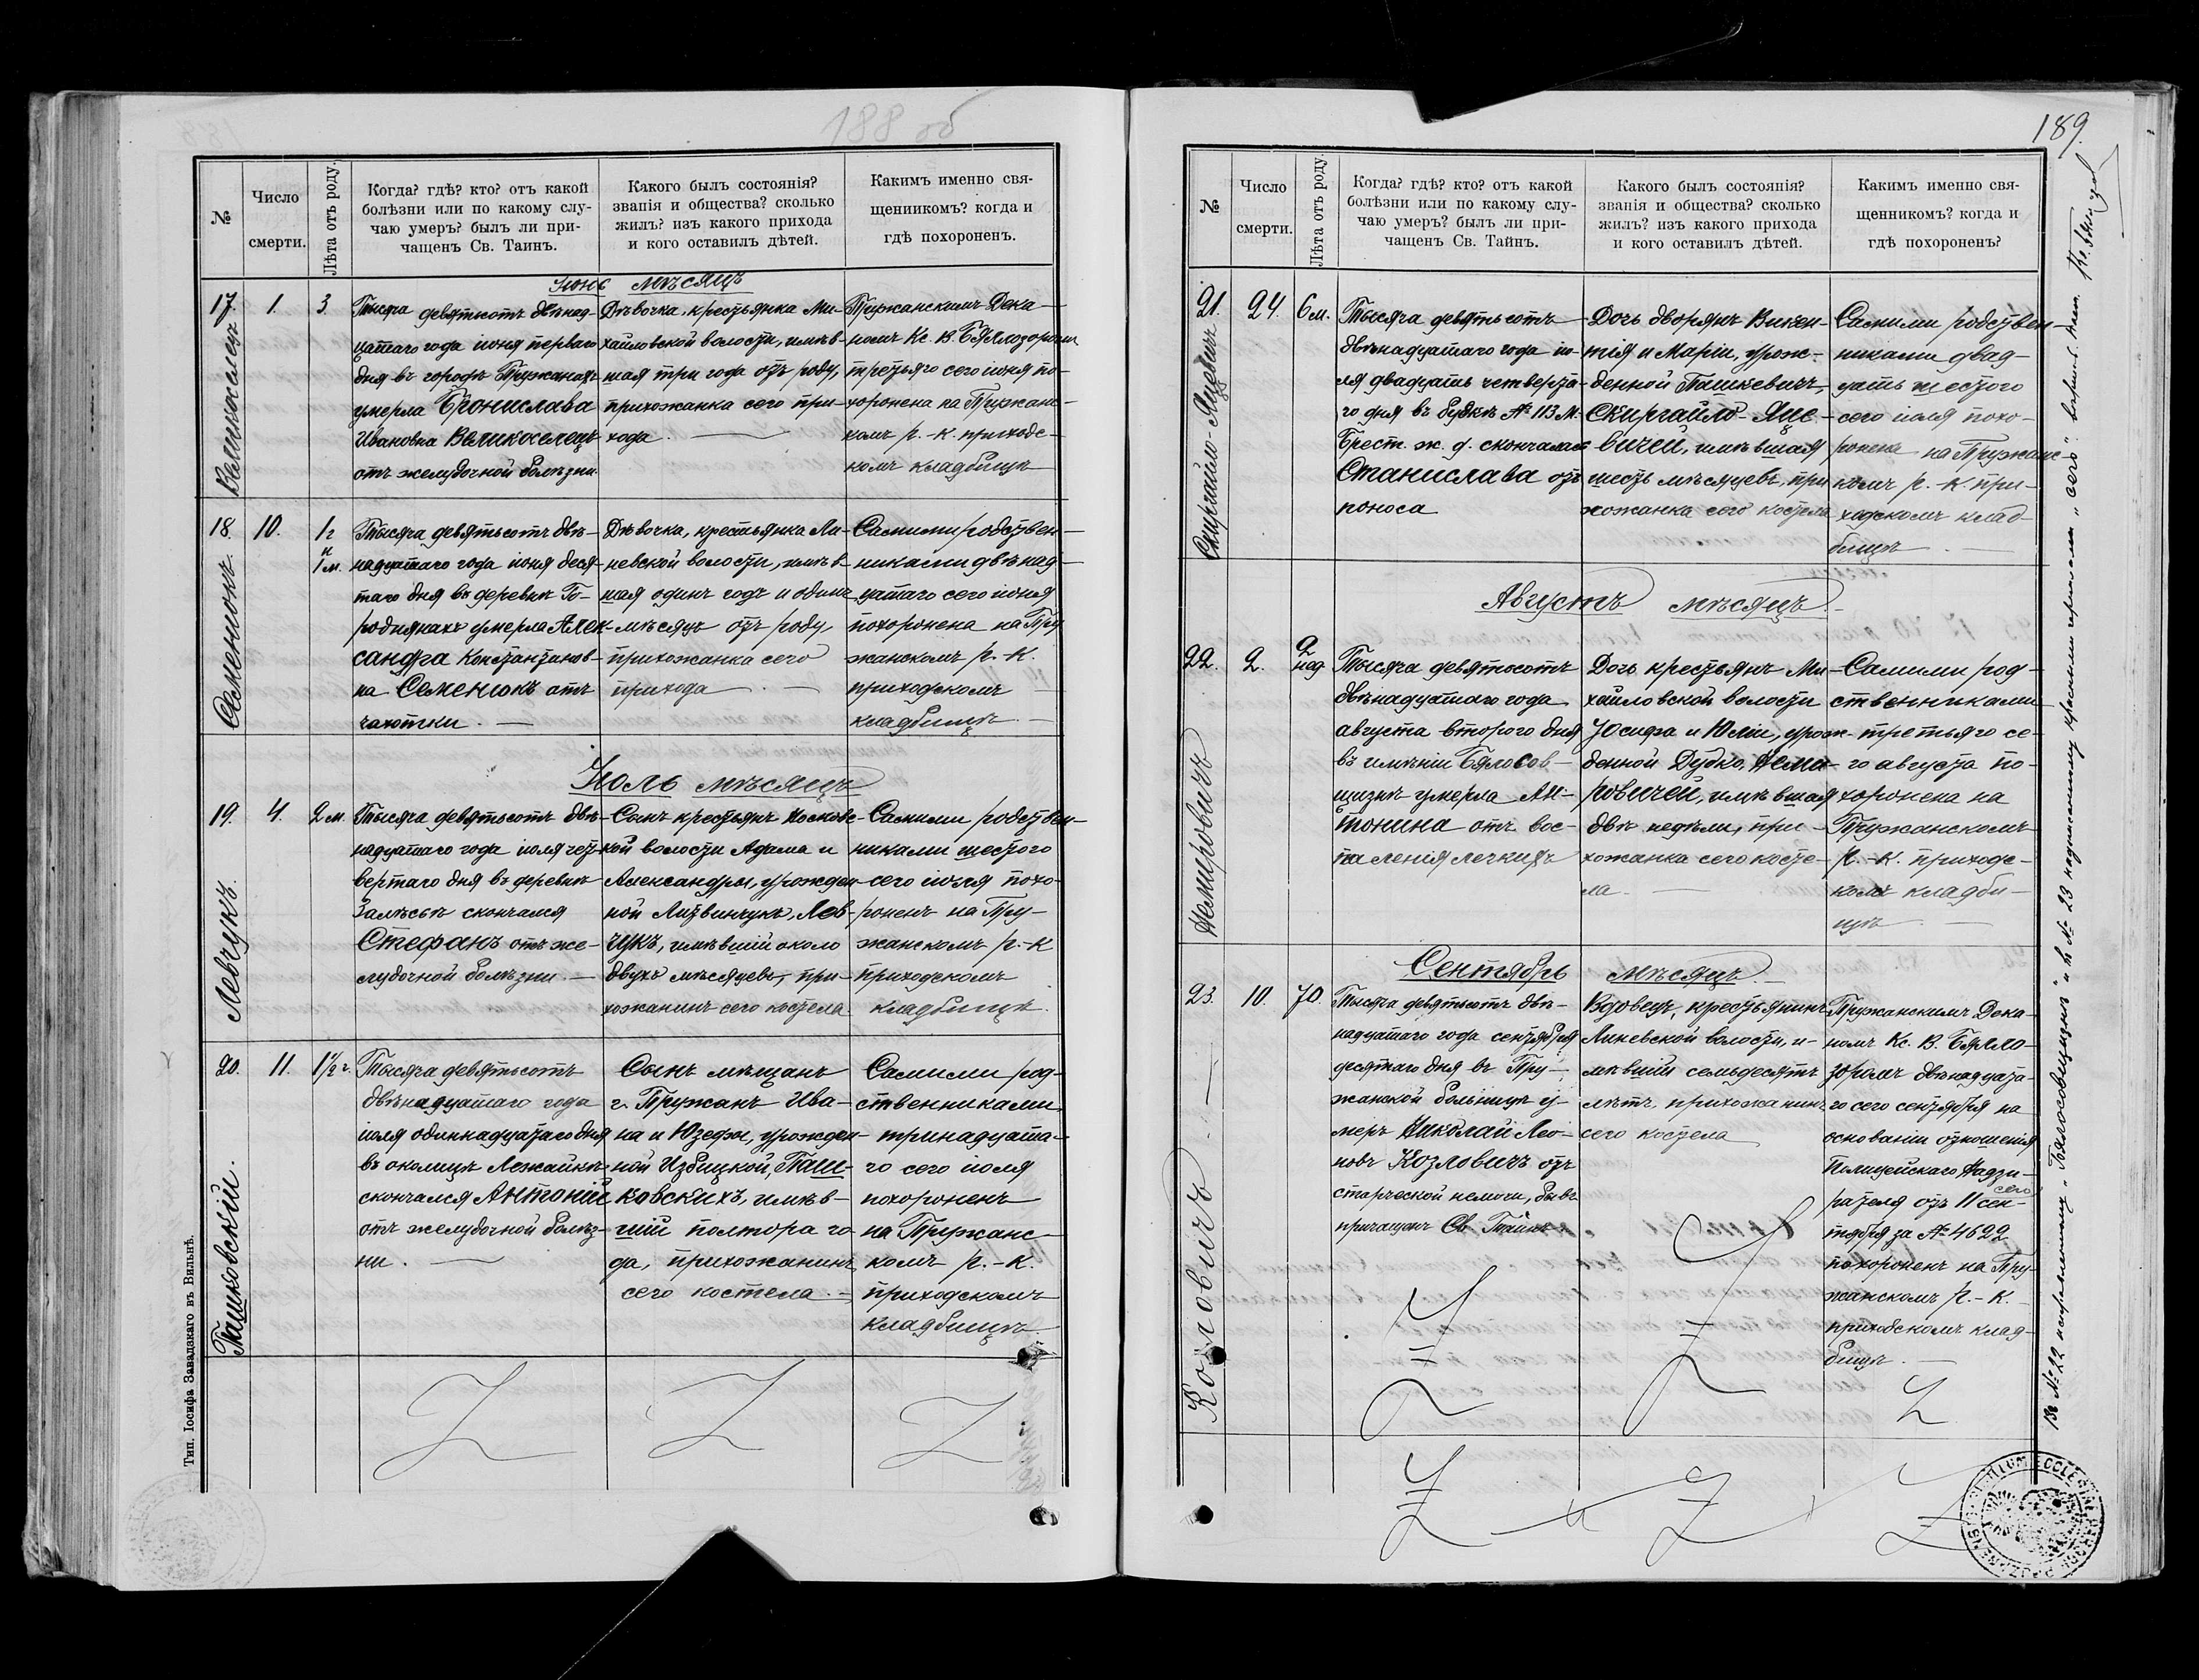 188 об
№
Число
смерти.
Лѣта отъ роду.
Когда? гдѣ? кто? отъ какой
болѣзни или по какому слу-
чаю умеръ? былъ ли при-
чащенъ Св. Таинъ.
Какого былъ состоянія?
званія и общества? сколько
жилъ? изъ какого прихода
и кого оставилъ дѣтей.
Какимъ именно свя-
щенникомъ? когда и
гдѣ похороненъ.
Іюнь мѣсяцъ
17.
Великоселецъ
1.
3
Тысяча девятьсотъ двѣнад-
цатаго года іюня перваго
дня въ городѣ Пружанахъ
умерла Бронислава
Ивановна Великоселецъ
отъ желудочной болѣзни
Дѣвочка, крестьянка Ми-
хайловской волости, имѣв-
шая три года отъ роду,
прихожанка сего при-
хода.
Пружанскимъ Дека-
номъ Кс. В. Бялозоромъ
третьяго сего іюня по-
хоронена на Пружанс-
комъ р.-к. приходс-
комъ кладбищѣ
18.
Семенюкъ.
10.
1 г
и
1 м.
Тысяча девятьсотъ двѣ-
надцатаго года іюня деся-
таго дня въ деревнѣ Го-
роднянахъ умерла Алек-
сандра Константинов-
на Семенюкъ отъ
чахотки.
Дѣвочка, крестьянка Ли-
невской волости, имѣв-
шая одинъ годъ и одинъ
мѣсяцъ отъ роду,
прихожанка сего
прихода.
Самими родствен-
никами двѣнад-
цатаго сего іюня
похоронена на Пру
жанскомъ р.-к.
приходскомъ
кладбищѣ.
Іюль мѣсяцъ
19.
Левчукъ.
4.
2 м.
Тысяча девятьсотъ двѣ-
надцатаго года іюля чет-
вертаго дня въ деревнѣ
Залѣсьѣ скончался
Стефанъ отъ же-
лудочной болѣзни.
Сынъ крестьянъ Носковс-
кой волости Адама и
Александры, урожден-
ной Литвинчукъ, Лев-
чукъ, имѣвшій около
двухъ мѣсяцевъ, при-
хожанинъ сего костела
Самими родствен-
никами шестого
сего іюля похо-
роненъ на Пру-
жанскомъ р.-к
приходскомъ
кладбищѣ.
20.
Пашковскій.
11.
1 1/2 г.
Тысяча девятьсотъ
двѣнадцатаго года
іюля одиннадцатаго дня
въ околицѣ Лежайкѣ
скончался Антоній
отъ желудочной болѣз-
ни.
Сынъ мѣщанъ
г. Пружанъ Ива-
на и Юзефы, урожден-
ной Избицкой, Паш-
ковскихъ, имѣв-
шій полтора го-
да, прихожанинъ
сего костела.
Самими род-
ственниками
тринадцата-
го сего іюля
похороненъ
на Пружанс-
комъ р.-к.
приходскомъ
кладбищѣ
Тип. Іосифа Завадзкаго въ Вильнѣ.
189.
№
Число
смерти.
Лѣта отъ роду.
Когда? гдѣ? кто? отъ какой
болѣзни или по какому слу-
чаю умеръ? былъ ли при-
чащенъ Св. Тайнъ.
Какого былъ состоянія?
званія и общества? сколько
жилъ? изъ какого прихода
и кого оставилъ дѣтей.
Какимъ именно свя-
щенникомъ? когда и
гдѣ похороненъ?
21.
Скиргайло-Яцевичъ
24.
6 м.
Тысяча девятьсотъ
двѣнадцатаго года ію-
ля двадцать четверта-
го дня въ будкѣ № 113 М.
Брест. ж. д. скончалась
Станислава отъ
поноса
Дочь дворянъ Викен-
тія и Маріи, урож-
денной Пашкевичъ,
Скиргайло-Яце-
вичей, имѣвшая
шесть мѣсяцевъ, при
хожанка сего костела
Самими родствен-
никами двад-
цать шестого
сего іюля похо-
ронена на Пружанс-
комъ р.-к. при-
ходскомъ клад-
бищѣ.
Августъ мѣсяцъ.
22.
Немировичъ
2.
2
нед.
Тысяча девятьсотъ
двѣнадцатаго года
августа второго дня
въ имѣніи Бялосов-
щизнѣ умерла Ан-
тонина отъ вос-
паленія легкихъ
Дочь крестьянъ Ми-
хайловской волости
Іосифа и Юліи, урож-
денной Дубко, Неми-
ровичей, имѣвшая
двѣ недѣли, при-
хожанка сего косте-
ла.
Самими род-
ственниками
третьяго се-
го августа по-
хоронена на
Пружанскомъ
р.-к. приходс-
комъ кладби-
щѣ.
Сентябрь мѣсяцъ.
23.
Козловичъ
10.
70.
Тысяча девятьсотъ двѣ-
надцатаго года сентября
десятаго дня въ Пру-
жанской больницѣ у-
меръ Николай Лео-
новъ Козловичъ отъ
старческой немочи, бывъ
причащенъ Св. Тайнъ
Вдовецъ, крестьянинъ
Линевской волости, и-
мѣвшій семьдесятъ
лѣтъ, прихожанинъ
сего костела
Пружанскимъ Дека-
номъ Кс. В. Бялло-
зоромъ двѣнадцата-
го сего сентября на
основаніи отношенія
Полицейскаго Надзи-
рателя отъ 11 сего сен-
тября за № 4622
похороненъ на Пру-
жанскомъ р.-к.
приходскомъ клад-
бищѣ.
Въ № 22 исправленному „Бялосовщизнѣ" и въ № 23 надписанному „сего" вѣрить.